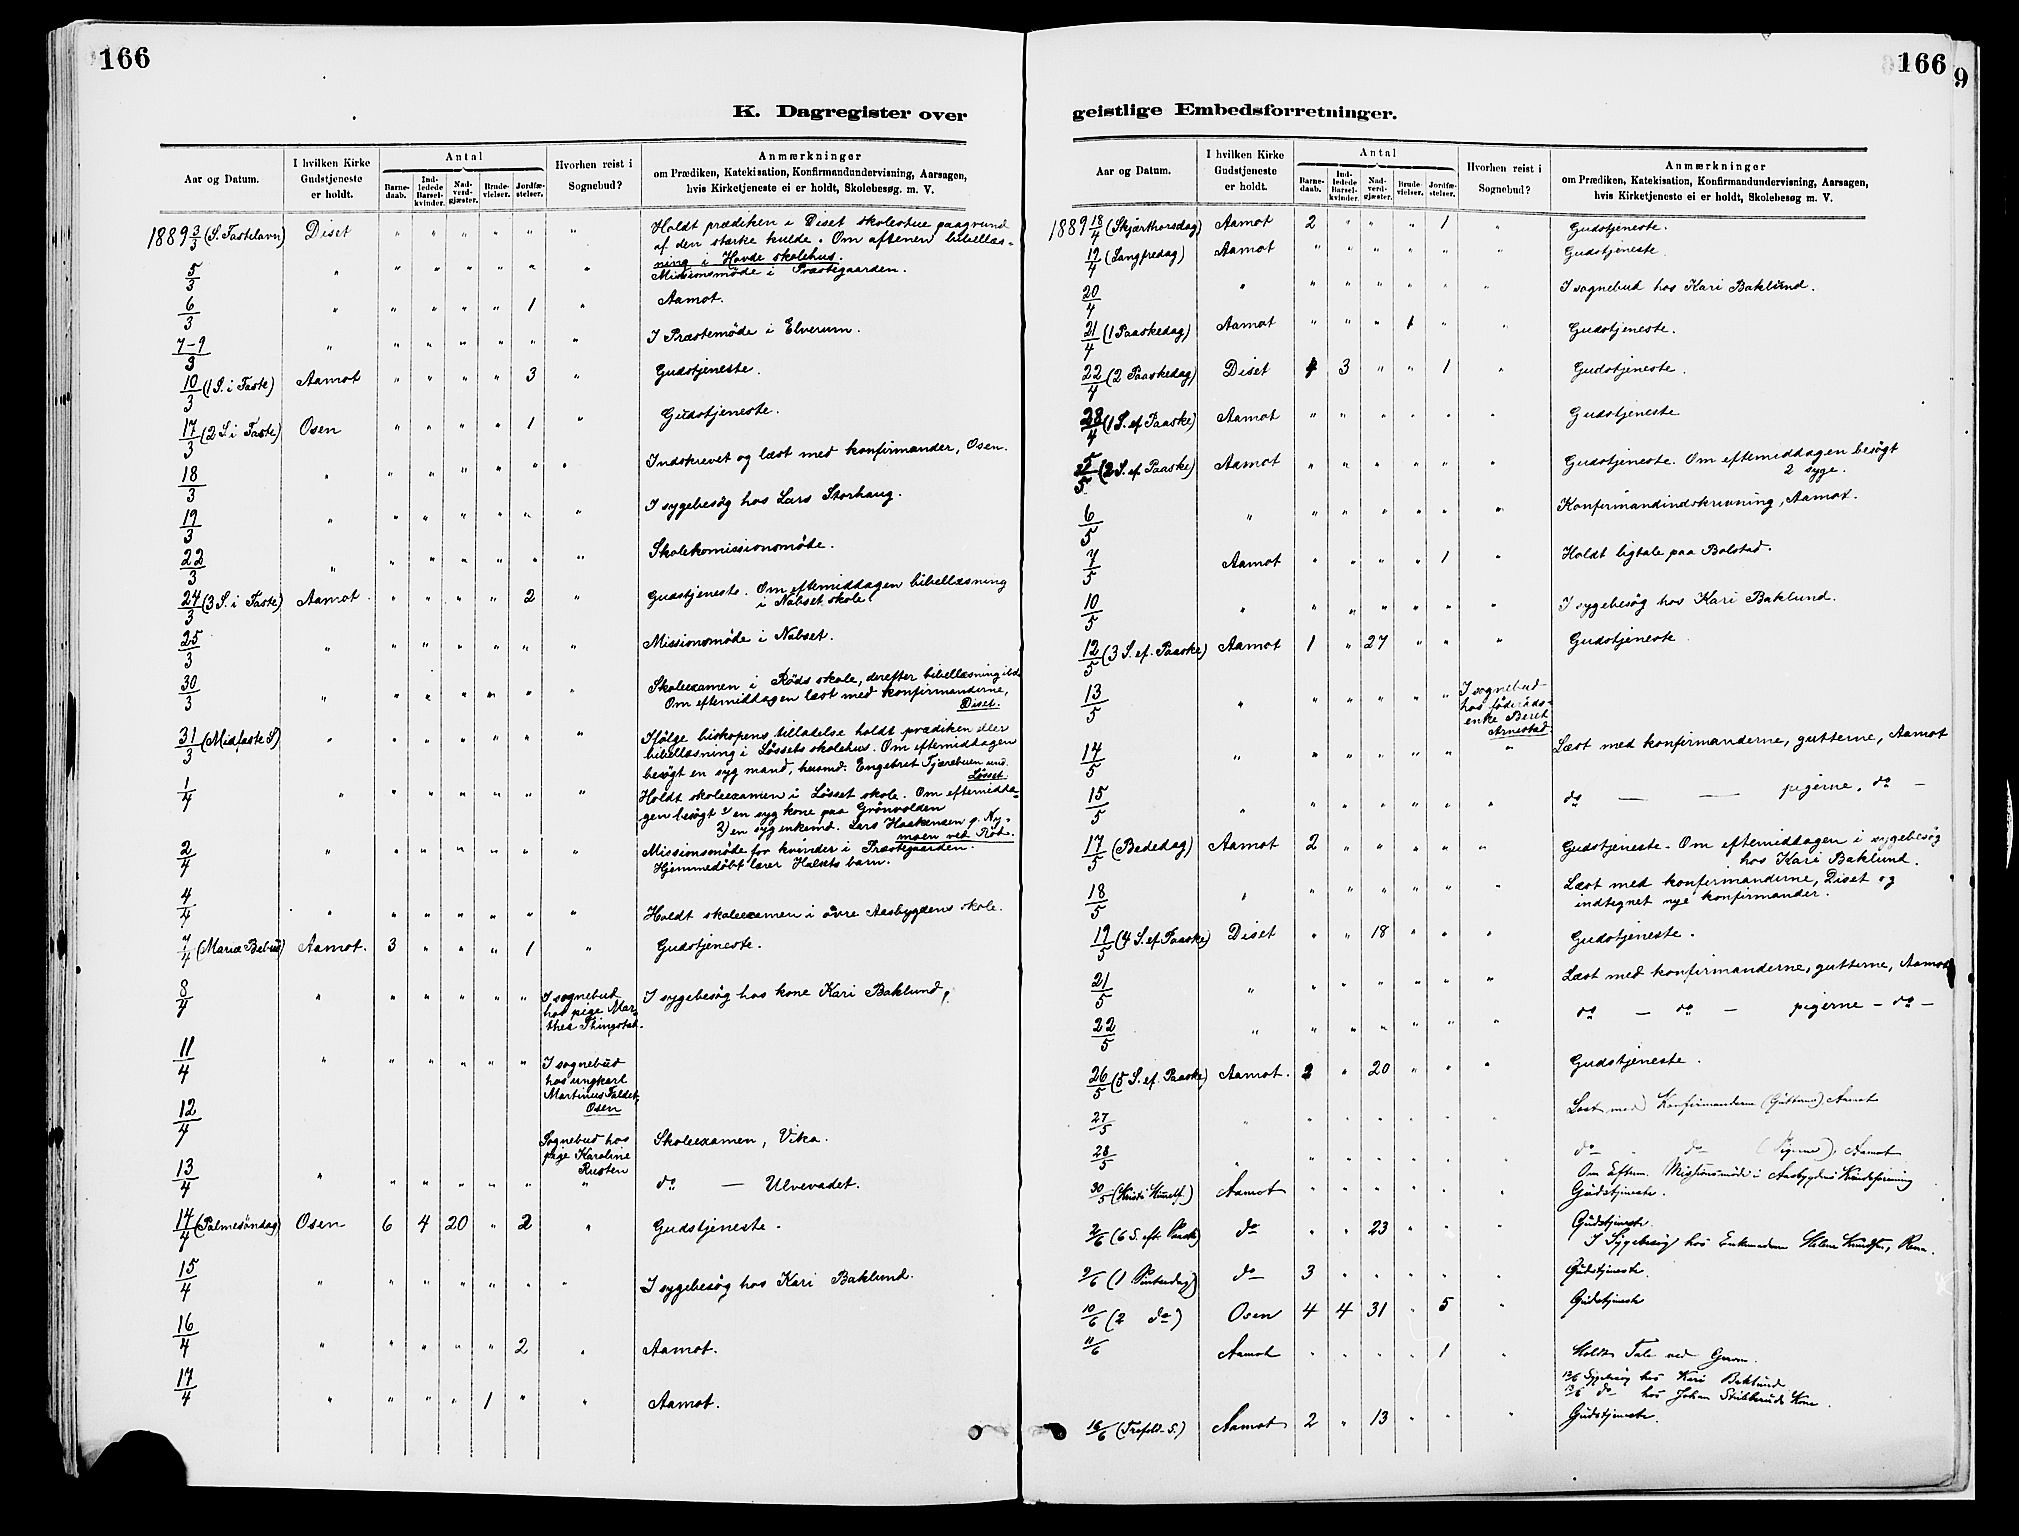 166
K. Dagregister over
Aar og Datum.
I hvilken Kirke Gudstjeneste er holdt.
Antal
Barne-daab.
Ind-ledede Barsel-kvinder.
Nad-verd-gjæster.
Brude-vielser.
Jordfæ-stelser.
Hvorhen reist i Sognebud?
Anmærkninger
om Prædiken, Katekisation, Konfirmandundervisning, Aarsagen,
hvis Kirketjeneste ei er holdt, Skolebesøg. m. V.
1889 3/3 (S. Fastelavn) Diset " " " " " " Holdt prædiken i Diset skolestue paagrund
af den stærke kulde. Om aftenen bibellæs-
ning i Hovde skolehus.
5/3 " " " " " " " Missionsmøde i Præstegaarden.
6/3 " " " " " 1 " Aamot.
7-9/3 " " " " " " " I Præstemøde i Elverum.
10/3 (1 S. i Faste) Aamot " " " " 3 " Gudstjeneste.
17/3 (2 S. i Faste) Osen " " " " 1 " Gudstjeneste.
18/3 " " " " " " " Indskrevet og læst med konfirmander, Osen.
19/3 " " " " " " " I sygebesøg hos Lars Storhaug.
22/3 " " " " " " " Skolekomissionsmøde.
24/3 (3 S. i Faste) Aamot " " " " 2 " Gudstjeneste. Om eftemiddagen bibellæsning
i Nabset skole.
25/3 " " " " " " " Missionsmøde i Nabset.
30/3 " " " " " " " Skoleexamen i Røds skole, derefter bibellæsning
Om eftemiddagen læst med konfirmanderne,
Diset.
31/3 (Midfaste S) " " " " " " " Ifølge biskopens tilladelse holdt prædiken eller
bibellæsning i Løssets skolehus. Om eftemiddagen
besøgt en syg mand, husmd. Engebret Tjærebuen und.
Løsset.
1/4 " " " " " " " Holdt skoleexamen i Løsset skole. Om eftemidda-
gen besøgt 1) en syg kone paa Grønvolden
2) en syg enkemd. Lars Haakensen p. Ny-
moen ved Røt.
2/4 " " " " " " " Missionsmøde for kvinder i Præstegaarden.
Hjemmedøbt lærer Halsets barn.
4/4 " " " " " " " Holdt skoleexamen i øvre Aasbygdens skole.
7/4 (Mariæ Bebud) Aamot. 3 " " " 1 " Gudstjeneste.
8/4 " " " " " " I sognebud hos pige Mar-thea Thingstad. I sygebesøg hos kone Kari Baklund.
11/4 " " " " " " I sognebud hos ungkarl Martinus Faldet, Osen
12/4 Sognebud hos pige Karoline Rusten Skoleexamen, Vika.
13/4 " " " " " " " do — Ulvevadet.
14/4 (Palmesøndag) Osen 6 4 20 " 2 " Gudstjeneste.
15/4 " " " " " " " I sygebesøg hos Kari Baklund.
16/4 " " " " " 2 " Aamot.
17/4 " " " " 1 " " Aamot.
166
9
geistlige Embedsforretninger.
Aar og Datum.
I hvilken Kirke Gudstjeneste er holdt.
Antal
Barne-daab.
Ind-ledede Barsel-kvinder.
Nad-verd-gjæster.
Brude-vielser.
Jordfæ-stelser.
Hvorhen reist i Sognebud?
Anmærkninger
om Prædiken, Katekisation, Konfirmandundervisning, Aarsagen,
hvis Kirketjeneste ei er holdt, Skolebesøg m. V.
1889 18/4 (Skjærthorsdag) Aamot 2 " " " 1 " Gudstjeneste.
19/4 (Langfredag) Aamot " " " " " " Gudstjeneste.
20/4 " " " " " " " I sognebud hos Kari Baklund.
21/4 (1 Paaskedag) Aamot " " " 1 " " Gudstjeneste.
22/4 (2 Paaskedag) Diset 4 3 " " 1 " Gudstjeneste.
28/4 (1 S. ef Paaske) Aamot " " " " " " Gudstjeneste
5/5 (2 S. ef Paaske) Aamot " " " " " " Gudstjeneste. Om eftemiddagen besøgt
2 syge.
6/5 " " " " " " " Konfirmandindskrivning, Aamot.
7/5 Aamot " " " " 1 " Holdt ligtale paa Bolstad.
10/5 " " " " " " " I sygebesøg hos Kari Baklund.
12/5 (3 S. ef. Paaske) Aamot 1 " 27 " " " Gudstjeneste.
13/5 " " " " " " I sognebud hos føderåds-enke Beret Arnestad.
14/5 " " " " " " " Læst med konfirmanderne, gutterne, Aamot
15/5 " " " " " " " do — — pigerne, do —
17/5 (Bededag) Aamot 2 " " " " " Gudstjeneste. Om eftemiddagen i sygebesøg
hos Kari Baklund.
18/5 " " " " " " " Læst med konfirmanderne, Diset og
indtegnet nye konfirmander.
19/5 (4 S. ef Paaske) Diset " " 18 " " " Gudstjeneste.
21/5 " " " " " " " Læst med konfirmanderne, gutterne, Aamot
22/5 " " " " " " " do — do — pigerne — do —
26/5 (5 S. ef. Paaske) Aamot. 2 " 20 " " " Gudstjeneste.
27/5 " " " " " " " Læst med Konfirmanderne (Gutterne) Aamot
28/5 " " " " " " " do " do (Pigerne), Aamot.
Om Efterm. Missionsmøde i Aasbygdens Kvindeforening
30/5 (Kristi Himelf.) Aamot " " " " " " Gudstjeneste.
2/6 (6 S. eft. Paaske) do " " 23 " " " Gudstjeneste.
I Sygebesøg hos Enkemadam Helene Knudsen, Rena.
9/6 (1 Pintsedag) do 3 " " " " " Gudstjeneste.
10/6 (2 do) Osen 4 4 31 " 5 " Gudstjeneste
11/6 Aamot " " " " 1 " Holdt Tale ved Graven.
12/6 Sygebesøg hos Kari Baklund
13/6 do hos Johan Stubberuds Kone.
16/6 (Trefold. S.) Aamot 2 " 13 " " " Gudstjeneste.